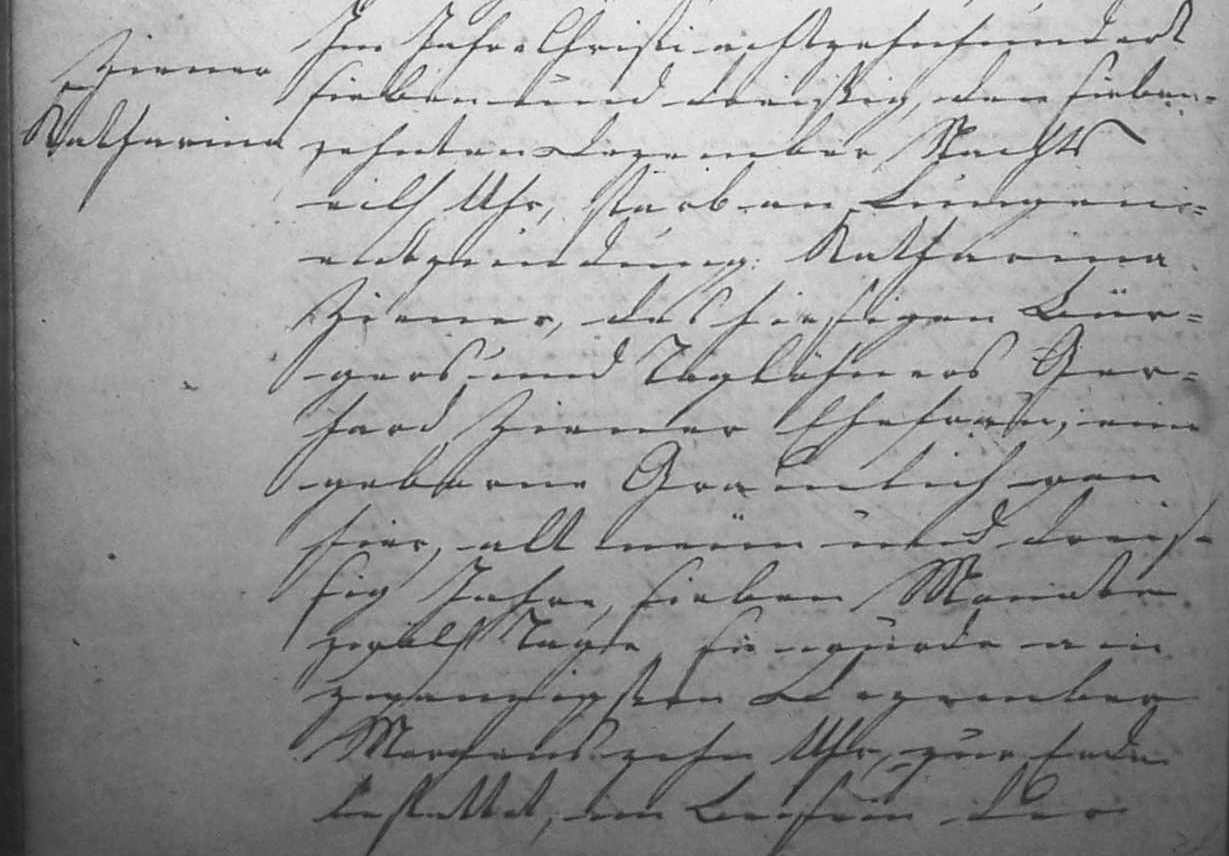 Ziener
Katharina
Im Jahre Christi achtzehnhundert
sieben und dreißig, den sieben-
zehnten Dezember Nachts
eilf Uhr, starb an Lungen-
entzündung: Katharina
Ziener, des hiesigen Bür-
gers und Taglöhners Ger-
hard Ziener Ehefrau, eine
geborne Gräulich von
hier, alt neun und dreis-
sig Jahre, sieben Monate
zwölf Tage. Sie wurde am
zwanzigsten Dezember
Morgens zehn Uhr, zur Erde
bestattet, im Beisein der